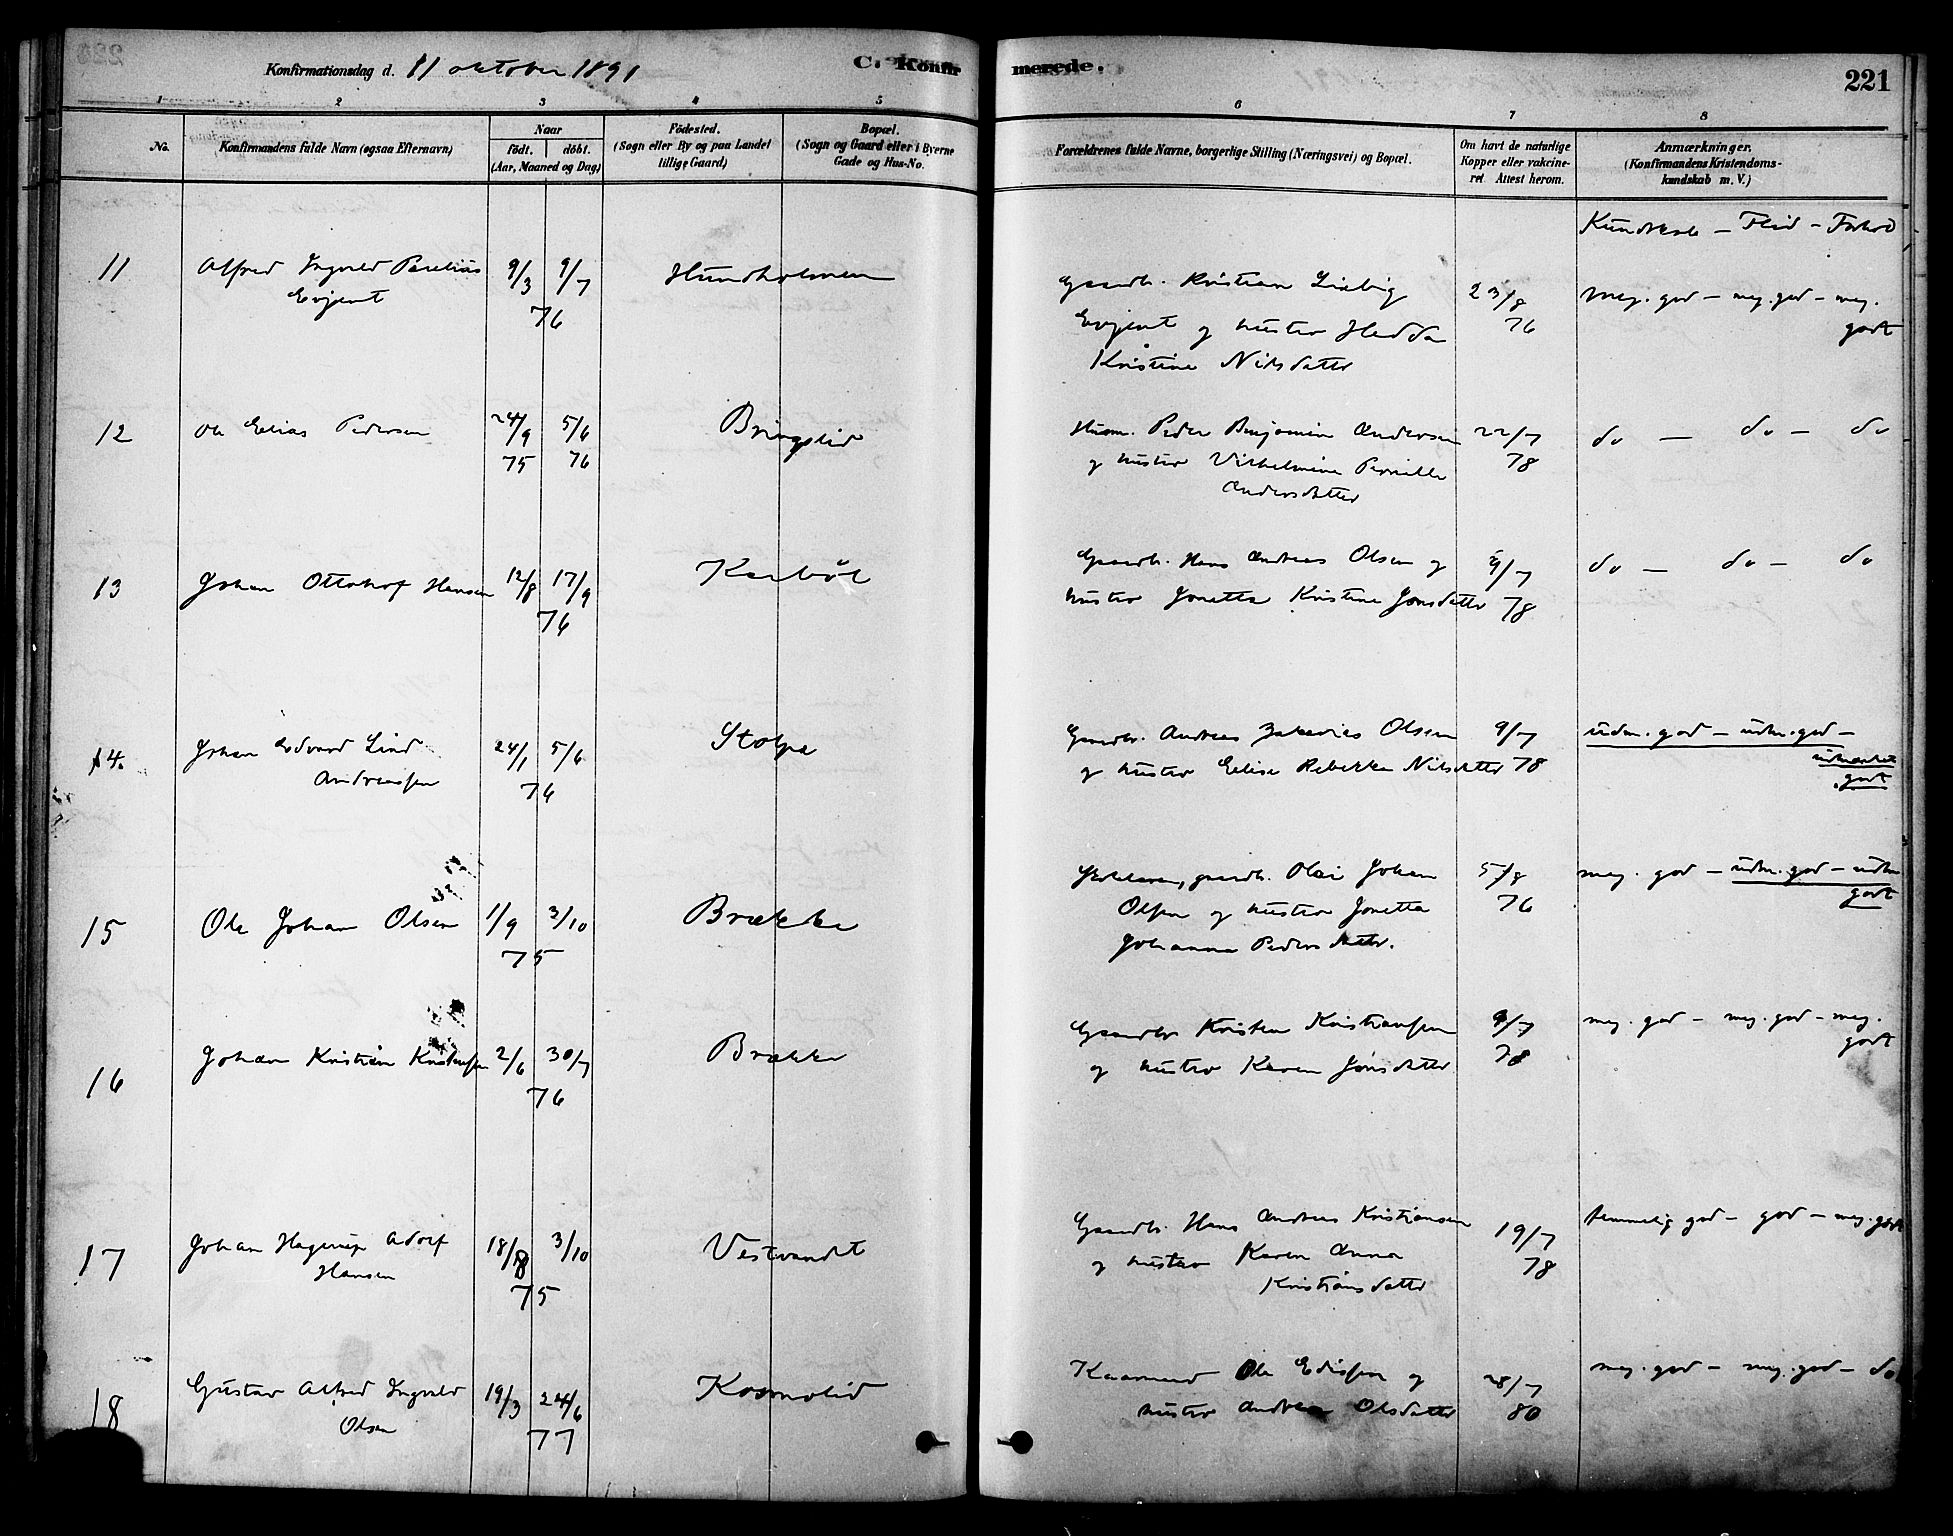 Konfirmationsdag d. 11 oktober 1891
C. Konfirmerede.
221
1 2 3 4 5 6 7 8
No.
Konfirmandens fulde Navn (ogsaa Efternavn)
Naar
født. døbt.
(Aar, Maaned og Dag)
Fødested.
(Sogn eller By og paa Landet
tillige Gaard)
Bopæl.
(Sogn og Gaard eller i Byerne
Gade og Hus-No.
Forældrenes fulde Navne, borgerlige Stilling (Næringsvei) og Bopæl.
Om havt de naturlige
Kopper eller vakcine-
ret Attest herom.
Anmærkninger.
(Konfirmandens Kristendoms-
kundskab m. V.)
Kundskab – Flid – Forhold
11
Alfred Ingvald Parelius
Evjent
9/3 9/7
76
Hundholmen
Gaardb. Kristian Liebig
Evjent og hustro Hedda
Kristine Nilsdatter
23/8
76
meg. god – meg. god – meg.
godt
12
Ole Elias Pedersen
24/9 5/6
75 76
Bringslid
Husm. Peder Benjamin Andersen
og hustro Vilhelmine Pernille
Andersdatter
22/7
78
do – do – do
13
Johan Ottohof Hansen
12/8 17/9
76
Karbøl
Gaardb. Hans Andreas Olsen og
hustro Jonetta Kristine Jonsdatter
9/7
78
do – do – do
14.
Johan Edvard Lind
Andreassen
24/1 5/6
76
Stolpe
Gaardb. Andreas Zakarias Olsen
og hustro Elise Rebekka Nilsdatter
9/7
78
udm. god – udm. god –
udmerket
godt
15
Ole Johan Olsen
1/9 3/10
75
Brække
gaardb. Olai Johan
Olsen og hustro Jonetta
Johanna Pedersdatter.
5/8
76
meg. god – udm. god – udm
godt
16
Johan Kristian Kristensen
2/6 30/7
76
Brække
Gaardbr Kristen Kristiansen
og hustro Karen Jonsdatter
9/7
78
meg. god – meg. god – meg.
godt
17
Johan Hagerup Adolf
Hansen
18/8 3/10
75
Vestvandet
Gaardb. Hans Andreas Kristiansen
og hustro Karen Anna
Kristiansdatter
19/7
78
temmelig god – god – meg. godt
18
Gustav Alfred Ingvald
Olsen
19/3 24/6
77
Kosmolid
Kaarmand Ole Edissen og
hustro Andrea Olsdatter
28/7
80
meg. god – meg. god – do